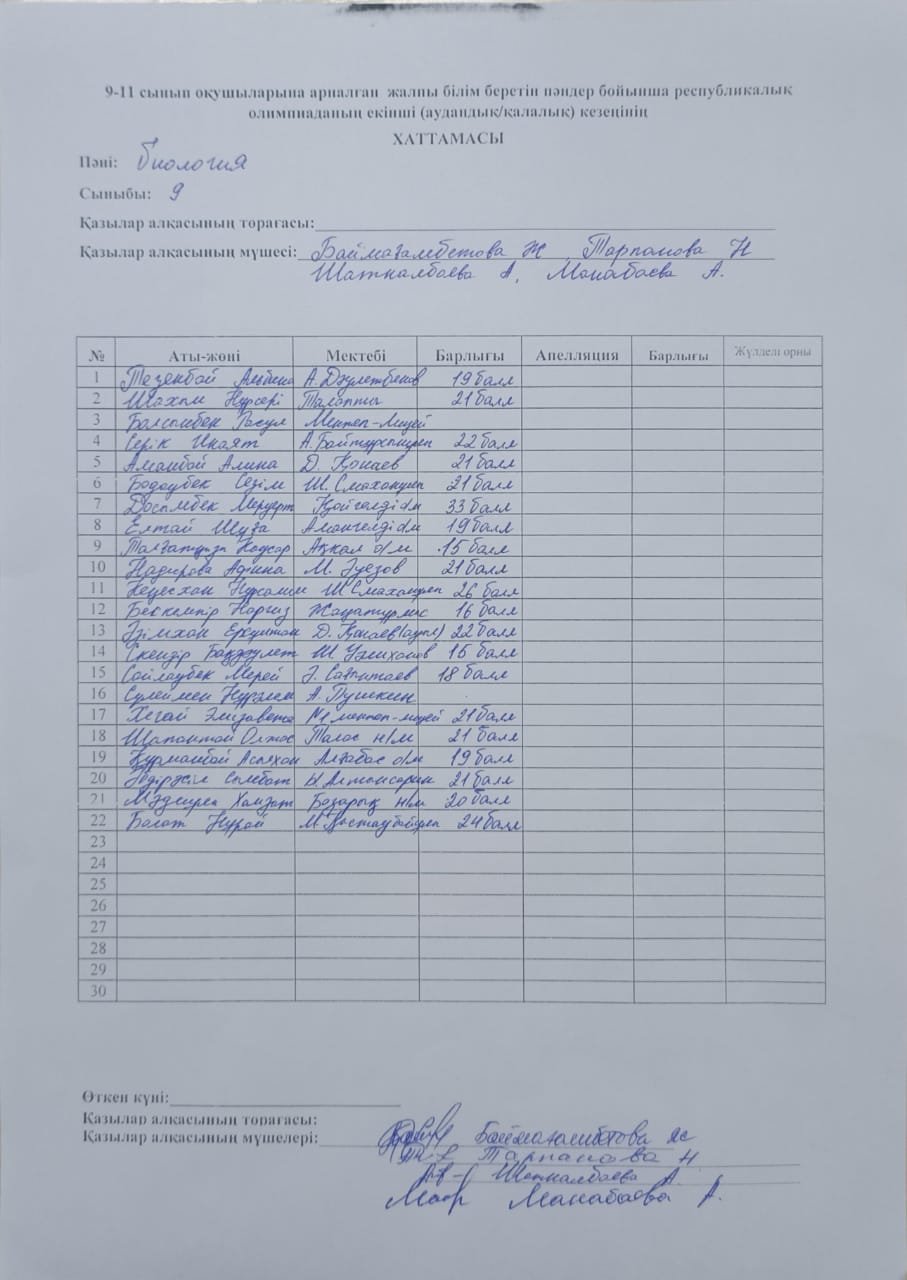 9-11 сынып оқушыларына арналған жалпы білім беретін пәндер бойынша республикалық
олимпиаданың екінші (аудандық/қалалық) кезеңінің
ХАТТАМАСЫ
Пәні: Биология
Сыныбы: 9
Қазылар алқасының төрағасы:
Қазылар алқасының мүшесі: Баймағамбетова Ж Тарпанова Н
Шатналбаева А, Манабаева А.
№ Аты-жөні Мектебі Барлығы Апелляция Барлығы Жүлделі орны
1 Тезекбай Альбина А. Дәулетбеков 19 балл
2 Шахым Нұрсері Талапты 21 балл
3 Балсымбек Расул Мектеп-Лицей
4 Серік Инаят А. Байтұрсынұлы 22 балл
5 Аманбай Алина Д. Қонаев 21 балл
6 Бодаубек Сезім Ш. Смаханұлы 21 балл
7 Досымбек Меруерт Қойгелді о/м 33 балл
8 Елтай Шуға Амангелді о/м 19 балл
9 Талғатқызы Каусар Аққал о/м 15 балл
10 Надирова Адина М. Әуезов 21 балл
11 Кеңесхан Нұрсалим Ш Смаханұлы 26 балл
12 Беккемпір Наргиз Жаңатұрмыс 16 балл
13 Әзімхан Ерсұлтан Д. Қонаев (ауыл) 22 балл
14 Скендір Бақдәулет Ш. Уәлиханов 15 балл
15 Сайлаубек Мерей Ә. Сағынтаев 18 балл
16 Сүлеймен А. Пушкин
17 Хегай Элизавета №1 мектеп-лицей 21 балл
18 Шапантай Олжас Талас н/м 21 балл
19 Құрманбай Асылхан Алғабас о/м 19 балл
20 Әдірәсіл Сымбат Ы. Алтынсарин 21 балл
21 Хамзат Базарық н/м 20 балл
22 Болат Нұрай М. Қыстаубайұлы 24 балл
23
24
25
26
27
28
29
30
Өткен күні:
Қазылар алқасының төрағасы:
Қазылар алқасының мүшелері: Баймағамбетова Ж
Тарпанова Н
Шатналбаева А.
Манабаева А.